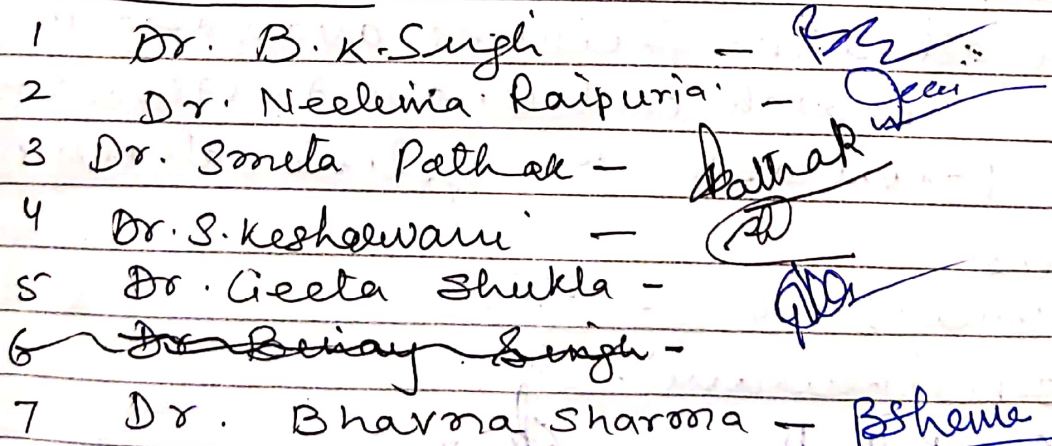 1 Dr. B. K. Singh -
2 Dr. Neelima Raipuria -
3 Dr. Smita Pathak - Pathak
4 Dr. S. Kesharwani -
5 Dr. Geeta Shukla -
6 Dr Binay Singh -
7 Dr. Bhavna Sharma - BSharma